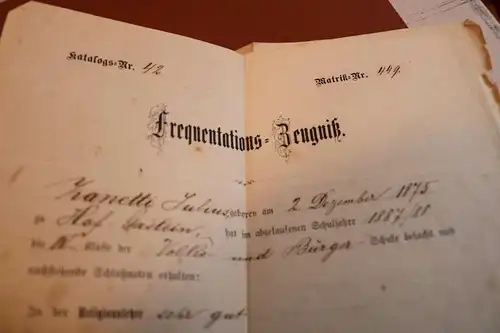 Katalogs-Nr. 42
Matrik-Nr. 449.
Frequentations-Zeugniß.
Zanetti Julius, geboren am 2 Dezember 1875
zu Hof Gastein, hat im abgelaufenen Schuljahre 1887/88
die IV Klasse der Volks- und Bürger-Schule besucht und
nachstehende Schlußnoten erhalten:
In der Religionslehre sehr gut